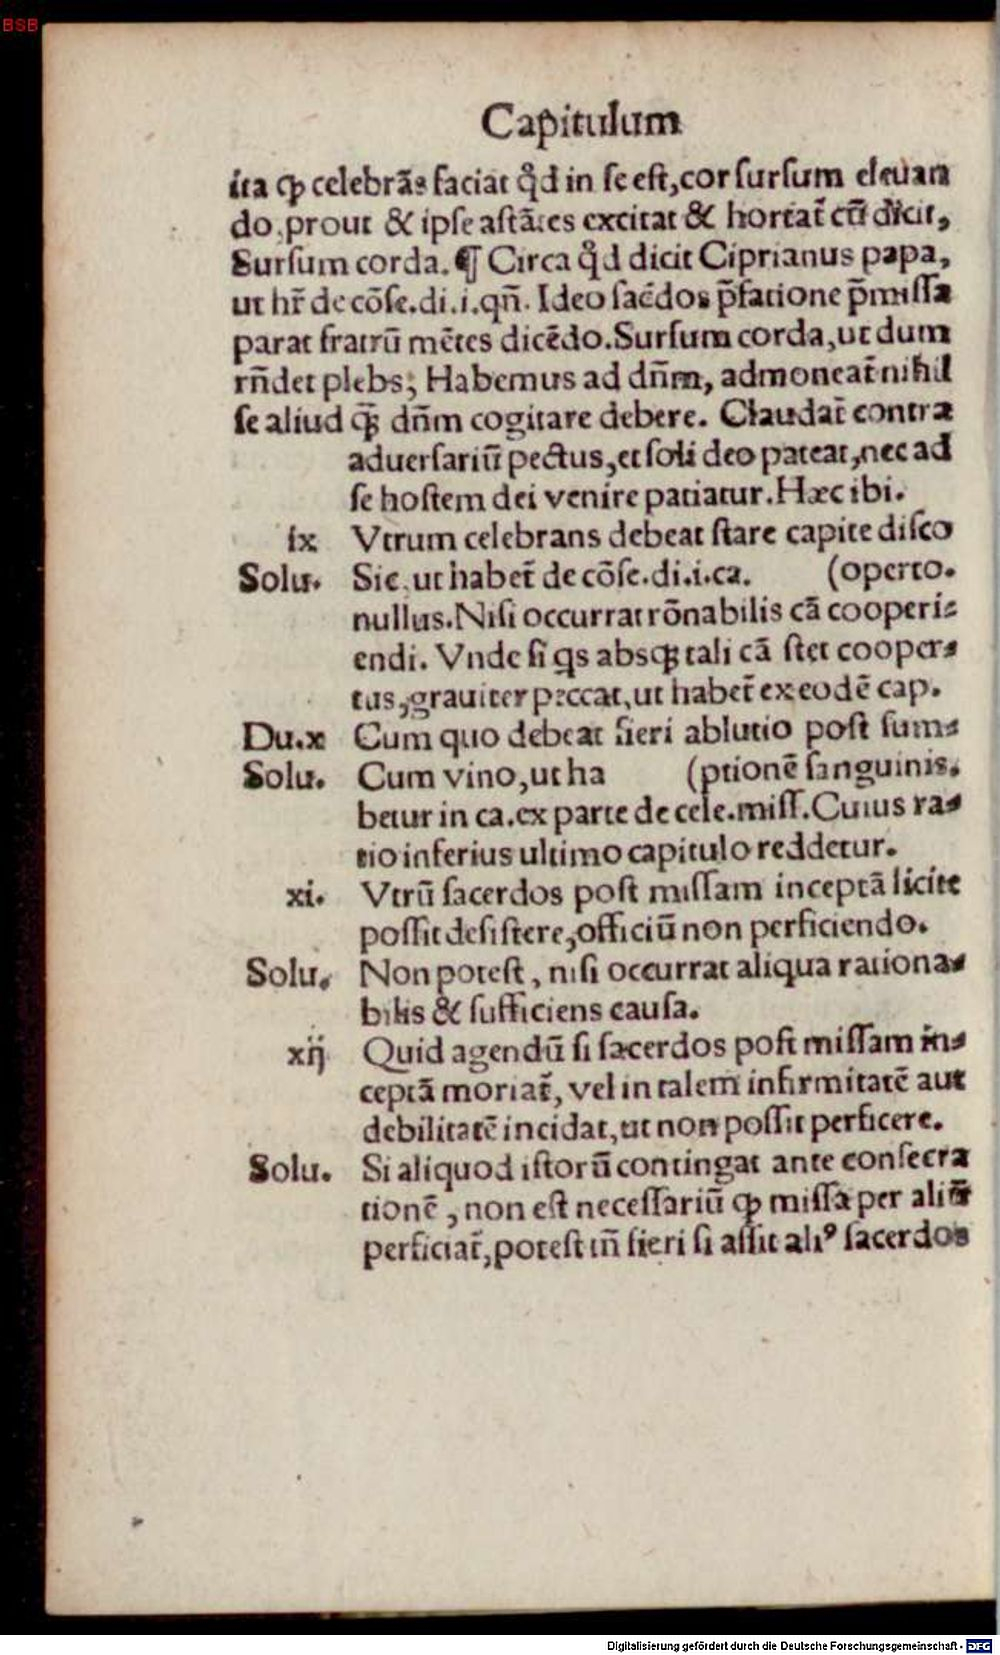 BSB
Capitulum
ita ꝙ celebrãs faciat qd̃ in se est, cor sursum eleuan
do, prout & ipse astãtes excitat & hortat̃ cũ dicit,
Sursum corda. ¶ Circa qd̃ dicit Ciprianus papa,
ut hr̃ de cõse. di. i. qñ. Ideo sac̃dos p̃fatione p̃missa
parat fratrũ mẽtes dicẽdo. Sursum corda, ut dum
rñdet plebs, Habemus ad dñm, admoneat̃ nihil
se aliud q̃ꝫ dñm cogitare debere. Claudat̃ contra
aduersariũ pectus, et soli deo pateat, nec ad
se hostem dei venire patiatur. Hæc ibi.
ix Vtrum celebrans debeat stare capite disco
Solu. Sic, ut habet̃ de cõse. di. i. ca. (operto.
nullus. Nisi occurrat rõnabilis cã cooperi-
endi. Vnde si qs absqꝫ tali cã stet cooper-
tus, grauiter peccat, ut habet̃ ex eodẽ cap.
Du. x Cum quo debeat fieri ablutio post sum-
Solu. Cum vino, ut ha (ptionẽ sanguinis.
betur in ca. ex parte de cele. miss. Cuius ra-
tio inferius ultimo capitulo reddetur.
xi. Vtrũ sacerdos post missam inceptã licite
possit desistere, officiũ non perficiendo.
Solu. Non potest, nisi occurrat aliqua rationa-
bilis & sufficiens causa.
xij Quid agendũ si sacerdos post missam in-
ceptã moriat̃, vel in talem infirmitatẽ aut
debilitatẽ incidat, ut non possit perficere.
Solu. Si aliquod istorũ contingat ante consecra
tionẽ, non est necessariũ ꝙ missa per aliũ
perficiat̃, potest tñ fieri si assit aliꝰ sacerdos
Digitalisierung gefördert durch die Deutsche Forschungsgemeinschaft - DFG